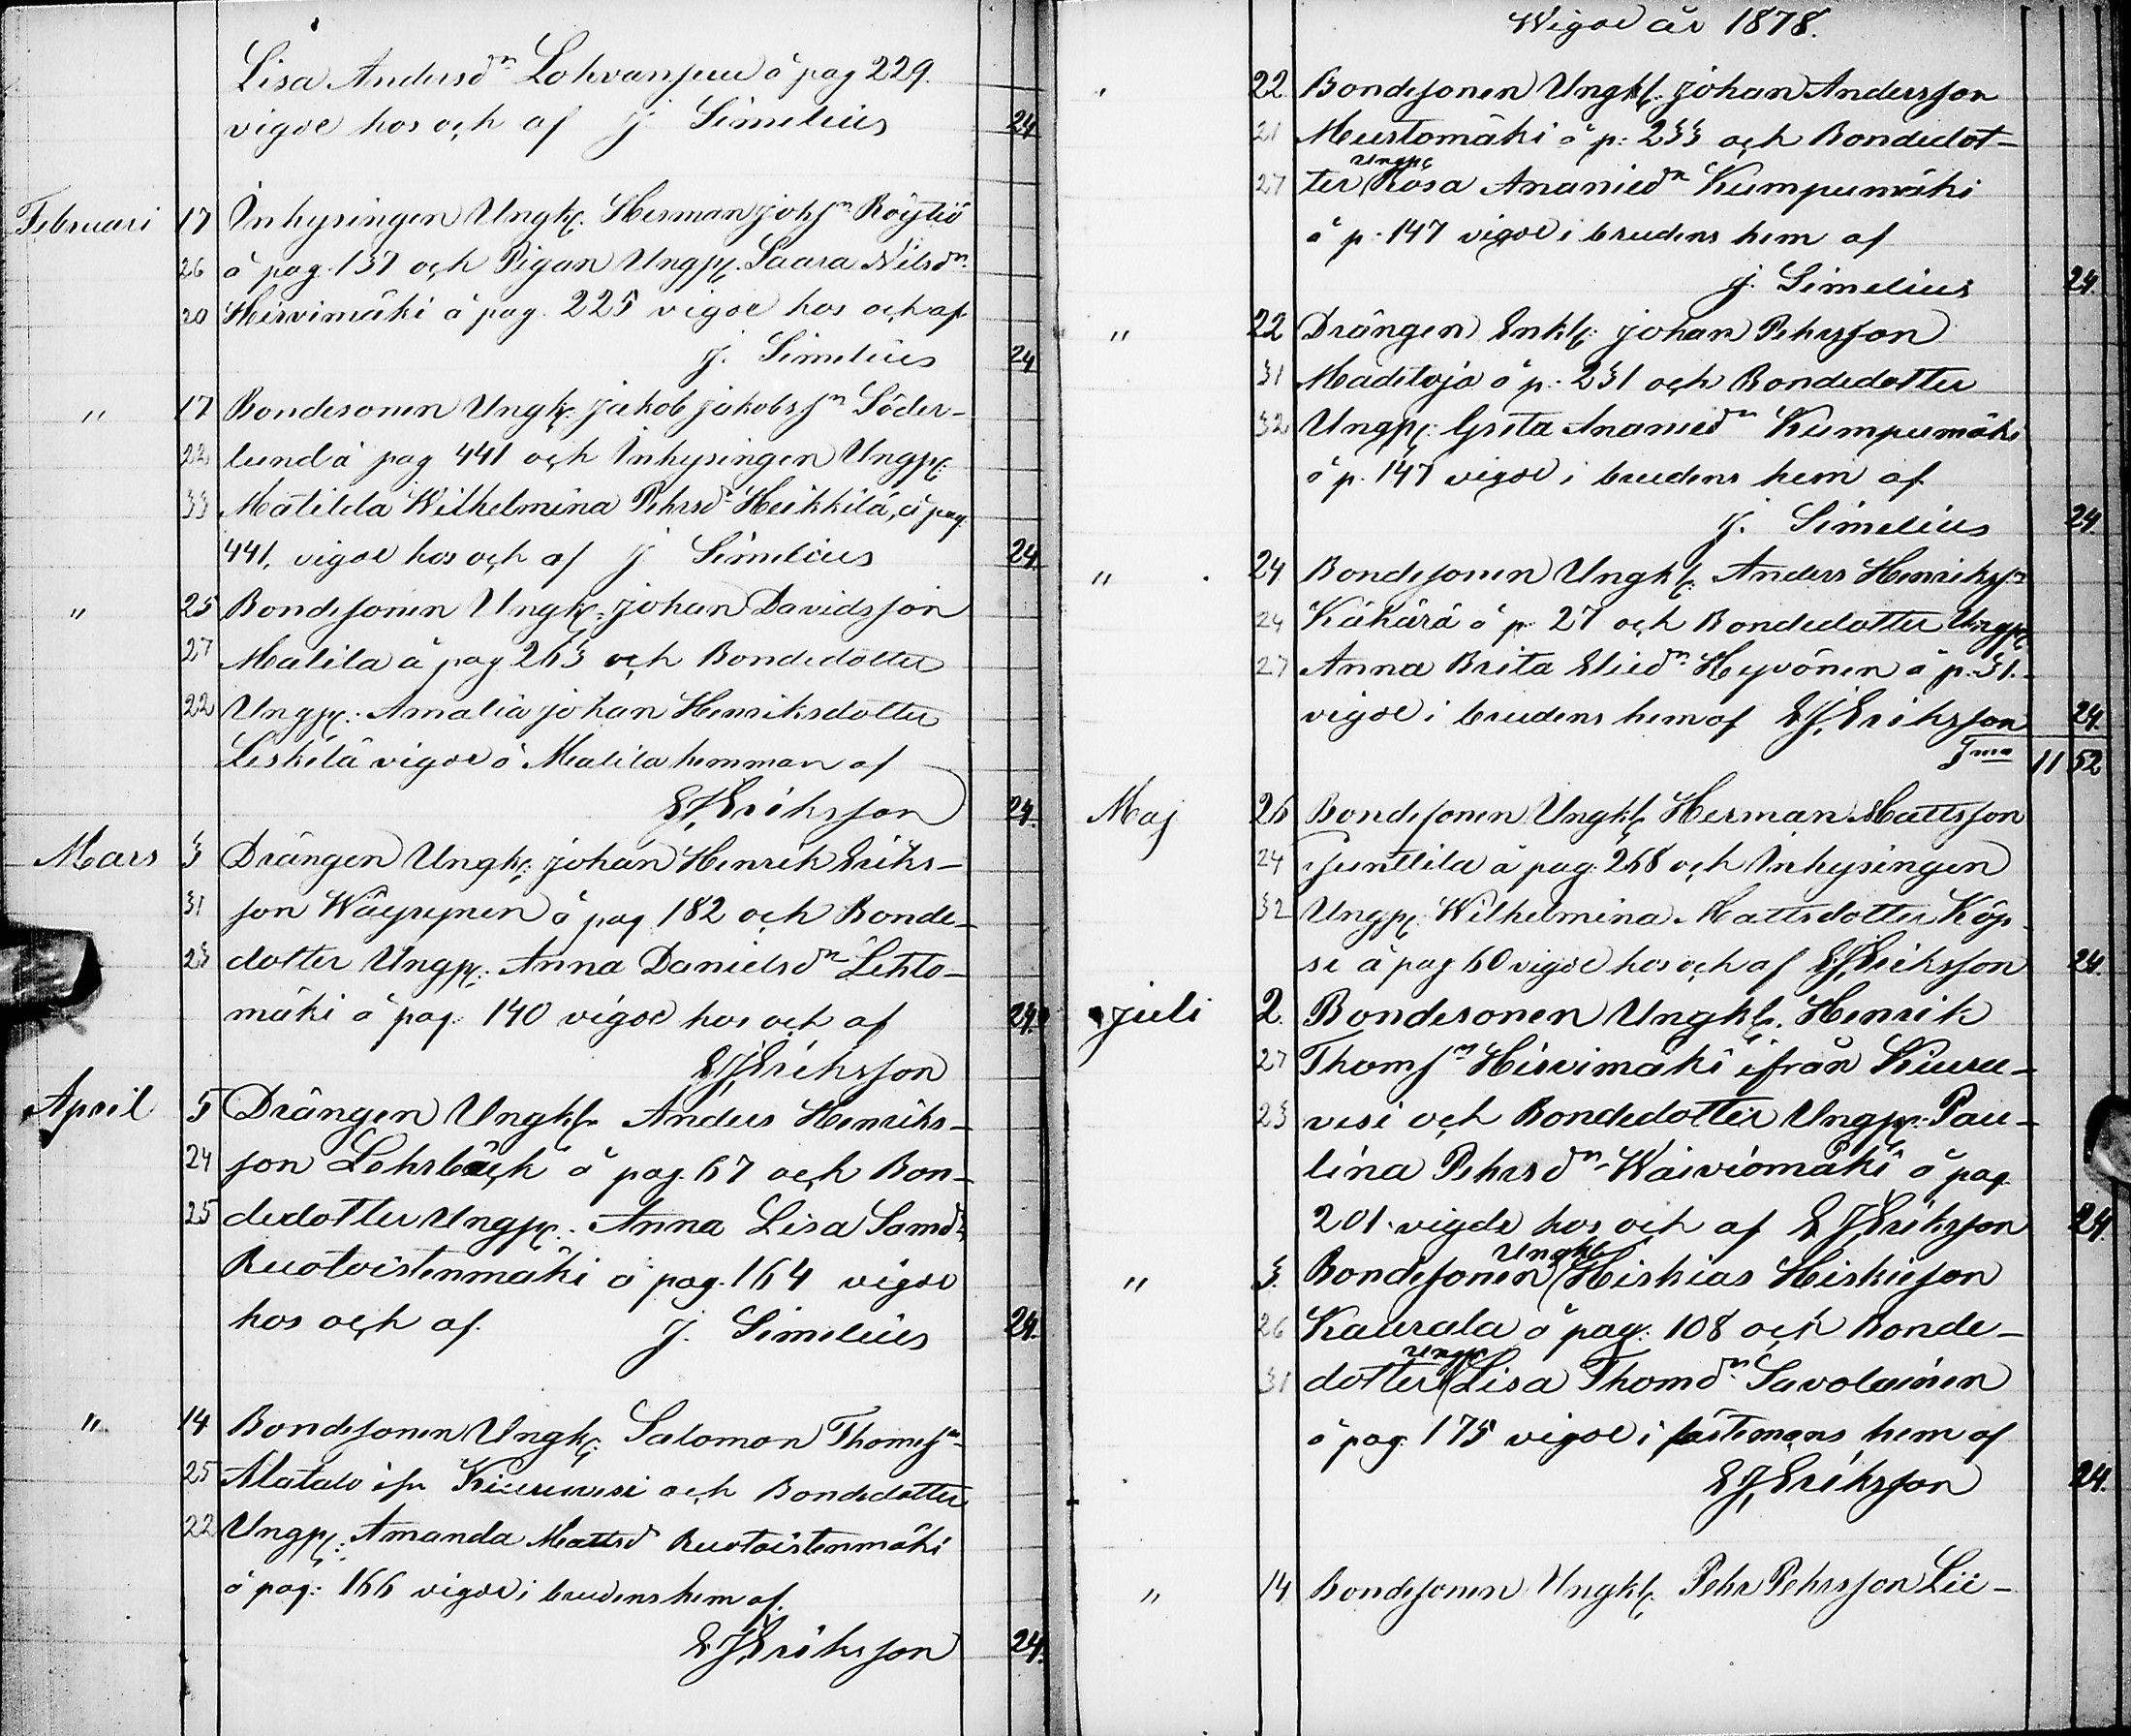 Lisa Andersdr Lohvanpuu å pag 229.
vigde hos och af J. Simelius 24
Februari 17 Inhysingen Ungk. Herman Johsn Röytiö
26 å pag. 137 och Pigan Ungp. Saara Nilsdr
20 Hirvimäki å pag. 225 vigde hos och af
J. Simelius 24
" 17 Bondesonen Ungk. Jakob Jakobssn Söder-
22 lund å pag 441 och Inhysingen Ungp:
33 Matilda Wilhelmina Pehrsdr Heikkilä, å pag
441, vigde hos och af J Simelius 24
" 25 Bondesonen Ungk: Johan Davidsson
27 Malila å pag 263 och Bondedotter
22 Ungp: Amalia Johan Henriksdotter
Leskelä vigde å Malila hemman af
E J Eriksson 24.
Mars 3 Drängen Ungk: Johan Henrik Eriks-
31 son Wäyrynen å pag 182 och Bonde-
23 dotter Ungp: Anna Danielsdr Lehto-
mäki å pag: 140 vigde hos och af 24.
E J Eriksson
April 5 Drängen Ungkl. Anders Henriks-
24 son Lehrbäck å pag. 67 och Bon-
25 dedotter Ungp: Anna Lisa Samdr
Ruotoistenmäki å pag. 164 vigde
hos och af J. Simelius 24.
" 14 Bondesonen Ungk: Salomon Thomsn
25 Alatalo ifr Kiuruvesi och Bondedotter
22 Ungp: Amanda Mattsd Ruotoistenmäki
å pag: 166 vigde i brudens hem af.
E J Eriksson 24.
Wigde år 1878.
22 Bondesonen Ungkl: Johan Andersson
21 Murtomäki å p: 233 och Bondedot-
Ungp:
27 ter Rosa Ananiedr Kumpumäki
å p. 147 vigde i brudens hem af
J. Simelius 24.
" 22 Drängen Enkl: Johan Pehrsson
31 Madetoja å p: 231 och Bondedotter
32 Ungp: Greta Ananiedr Kumpumäki
å p. 147 vigde i brudens hem af
J. Simelius 24.
" 24 Bondesonen Ungkl: Anders Henrikssn
24 Kähärä å p 27 och Bondedotter Ungp:
27 Anna Brita Eliedr Hyvönen å p. 31.
vigde i brudens hem af E J Eriksson 24.
11 52
Maj 26 Bondesonen Ungkl: Herman Mattsson
24 Junttila å pag: 268 och Inhysingen
32 Ungp: Wilhelmina Mattsdotter Köp-
si å pag 60 vigde hos och af E J Eriksson 24.
Juli 2. Bondesonen Ungkl. Henrik
27 Thomsn Hirvimäki ifrån Kiuru-
23 vesi och Bondedotter Ungp. Pau-
lina Pehrsdr Waiviomäki å pag
201. vigde hos och af E J Eriksson 24.
Ungkl
" 3. Bondesonen Hiskias Hiskiesson
26 Kaurala å pag: 108 och Bonde-
Ungp:
31 dotter Lisa Thomdr Savolainen
å pag: 175 vigde i fästemans hem af
E J Eriksson 24.
" 14 Bondesonen Ungkl: Pehr Pehrsson Lii-